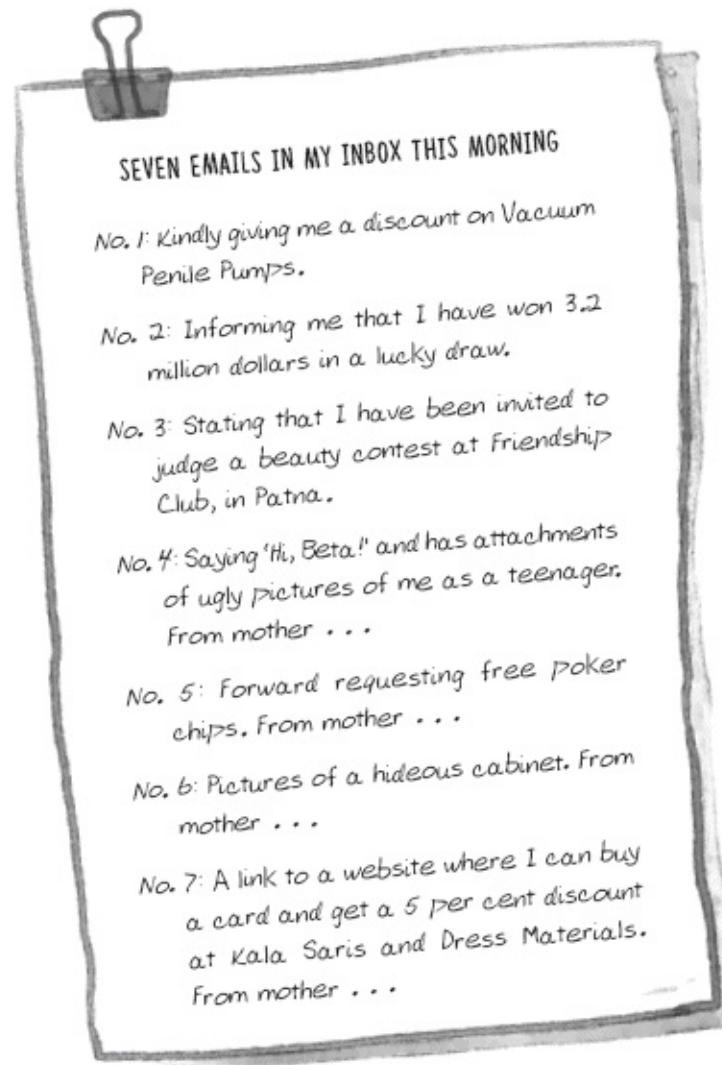 SEVEN EMAILS IN MY INBOX THIS MORNING
No. 1: Kindly giving me a discount on Vacuum
Penile Pumps.
No. 2: Informing me that I have won 3.2
million dollars in a lucky draw.
No. 3: Stating that I have been invited to
judge a beauty contest at Friendship
Club, in Patna.
No. 4: Saying 'Hi, Beta!' and has attachments
of ugly pictures of me as a teenager.
From mother . . .
No. 5: Forward requesting free poker
chips. From mother . . .
No. 6: Pictures of a hideous cabinet. From
mother . . .
No. 7: A link to a website where I can buy
a card and get a 5 per cent discount
at Kala Saris and Dress Materials.
From mother . . .